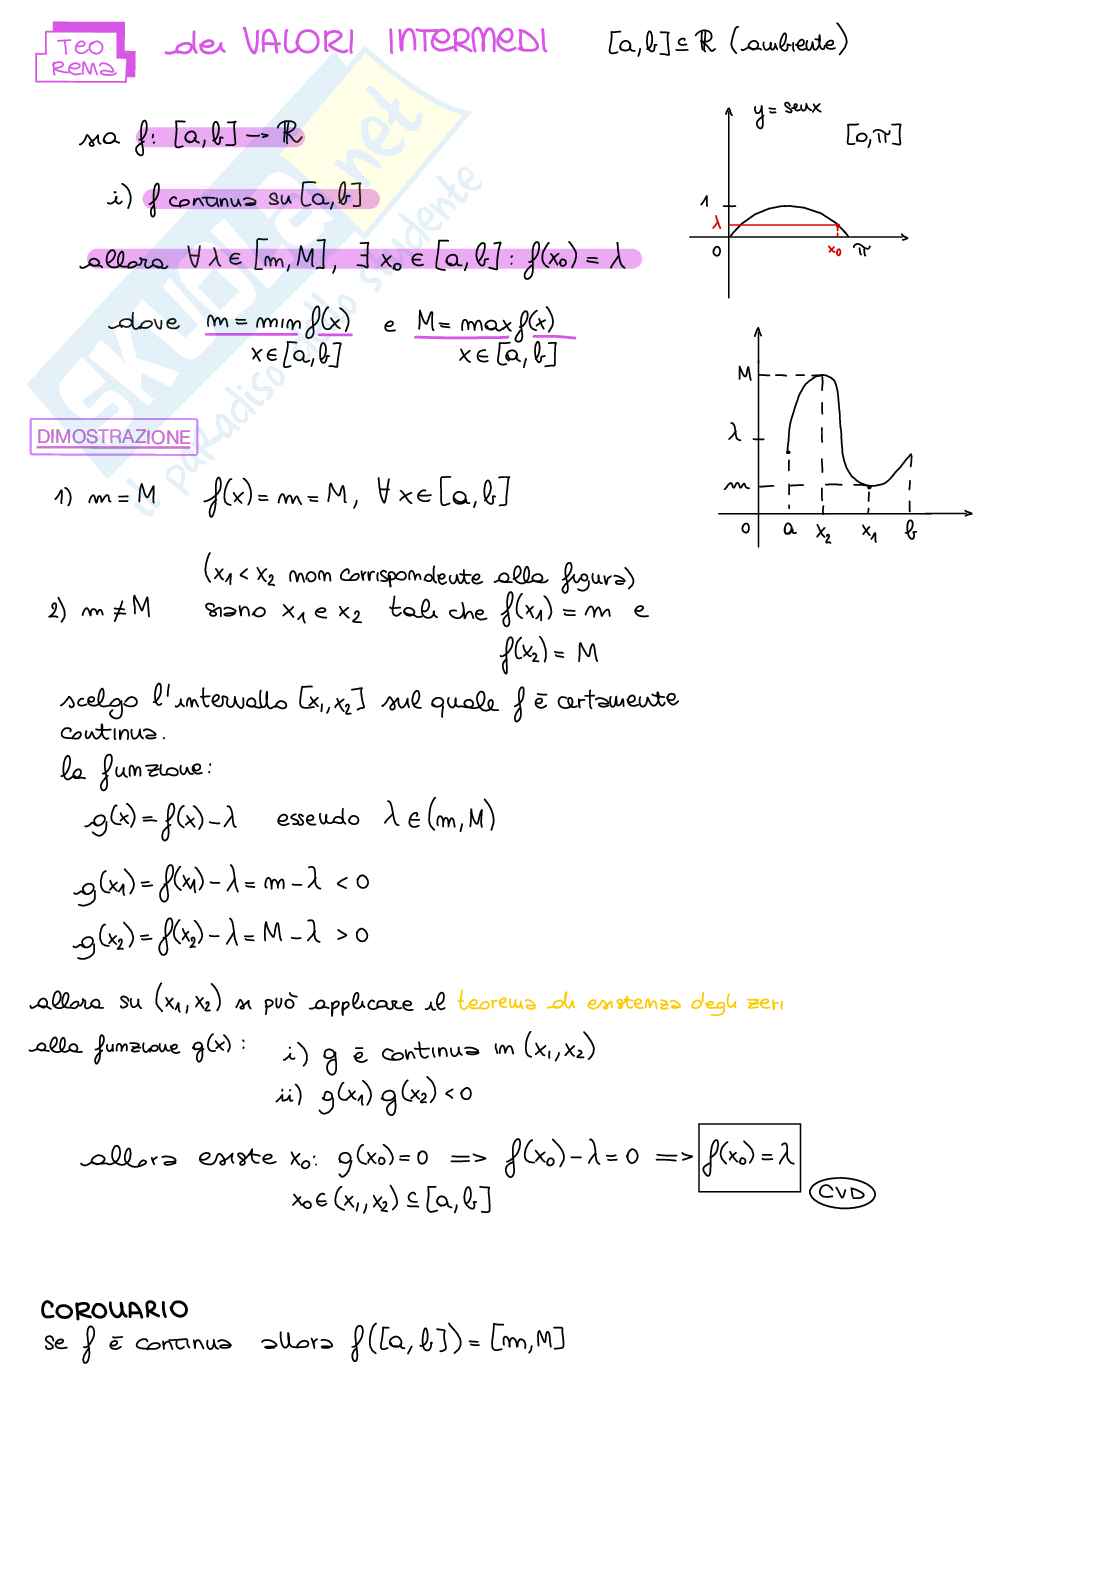 TEO
REMA
dei VALORI INTERMEDI [a,b] ⊆ ℝ (ambiente)
sia f: [a,b] → ℝ
i) f continua su [a,b]
allora ∀ λ ∈ [m, M], ∃ x₀ ∈ [a,b] : f(x₀) = λ
dove m = min f(x) e M = max f(x)
x ∈ [a,b] x ∈ [a,b]
y = senx
[0,π]
1
λ
0 x₀ π
M
λ
m
0 a x₂ x₁ b
SKUOLA.net
il paradiso dello studente
DIMOSTRAZIONE
1) m = M f(x) = m = M, ∀ x ∈ [a,b]
(x₁ < x₂ non corrispondente alla figura)
2) m ≠ M siano x₁ e x₂ tali che f(x₁) = m e
f(x₂) = M
scelgo l'intervallo [x₁,x₂] sul quale f è certamente
continua.
la funzione:
g(x) = f(x) - λ essendo λ ∈ (m, M)
g(x₁) = f(x₁) - λ = m - λ < 0
g(x₂) = f(x₂) - λ = M - λ > 0
allora su (x₁, x₂) si può applicare il teorema di esistenza degli zeri
alla funzione g(x) : i) g è continua in (x₁,x₂)
ii) g(x₁) g(x₂) < 0
allora esiste x₀: g(x₀) = 0 => f(x₀) - λ = 0 => f(x₀) = λ
x₀ ∈ (x₁, x₂) ⊆ [a,b]
CVD
COROLLARIO
se f è continua allora f([a,b]) = [m,M]